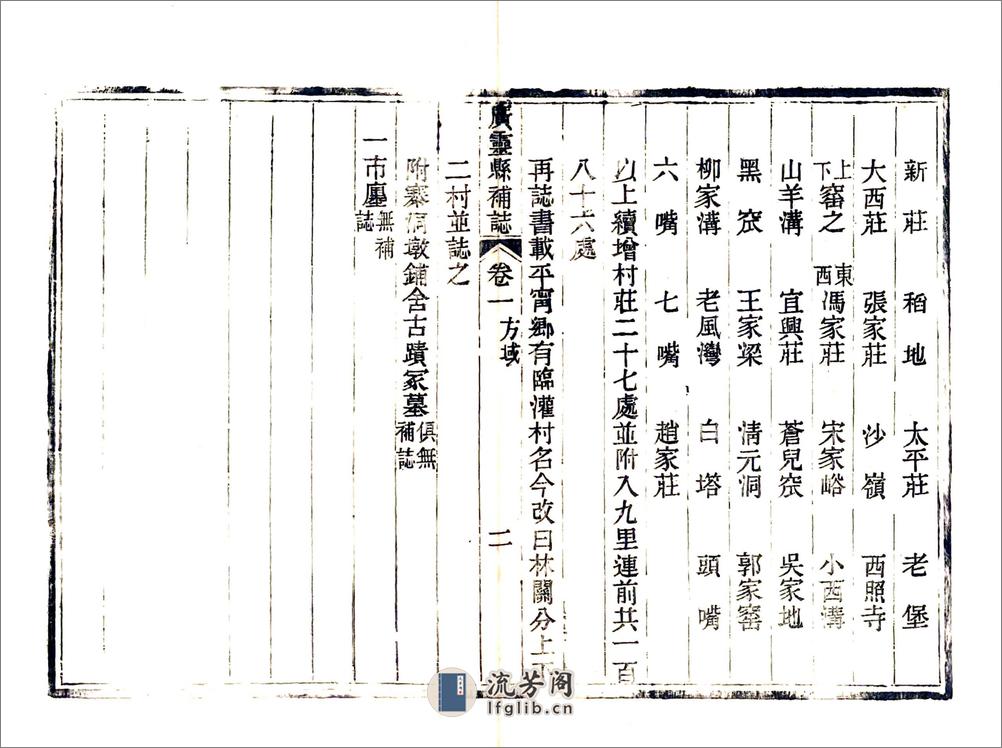 新莊　稻地　太平莊　老堡
大西莊　張家莊　沙嶺　西照寺
上下窑之　東西馮家莊　宋家峪　小西溝
山羊溝　宜興莊　蒼兒窊　吳家地
黑窊　王家梁　清元洞　郭家窰
柳家溝　老風灣　白塔　頭嘴
六嘴　七嘴　趙家莊
以上續增村莊二十七處並附入九里連前共一百
八十六處
再誌書載平甯鄉有臨灌村名今改曰林關分上下
二村並誌之
廣靈縣補誌　卷一　方域　二
附寨洞墩鋪舍古蹟冢墓俱無補誌
一市廛無補誌
流芳阁
lfglib.cn